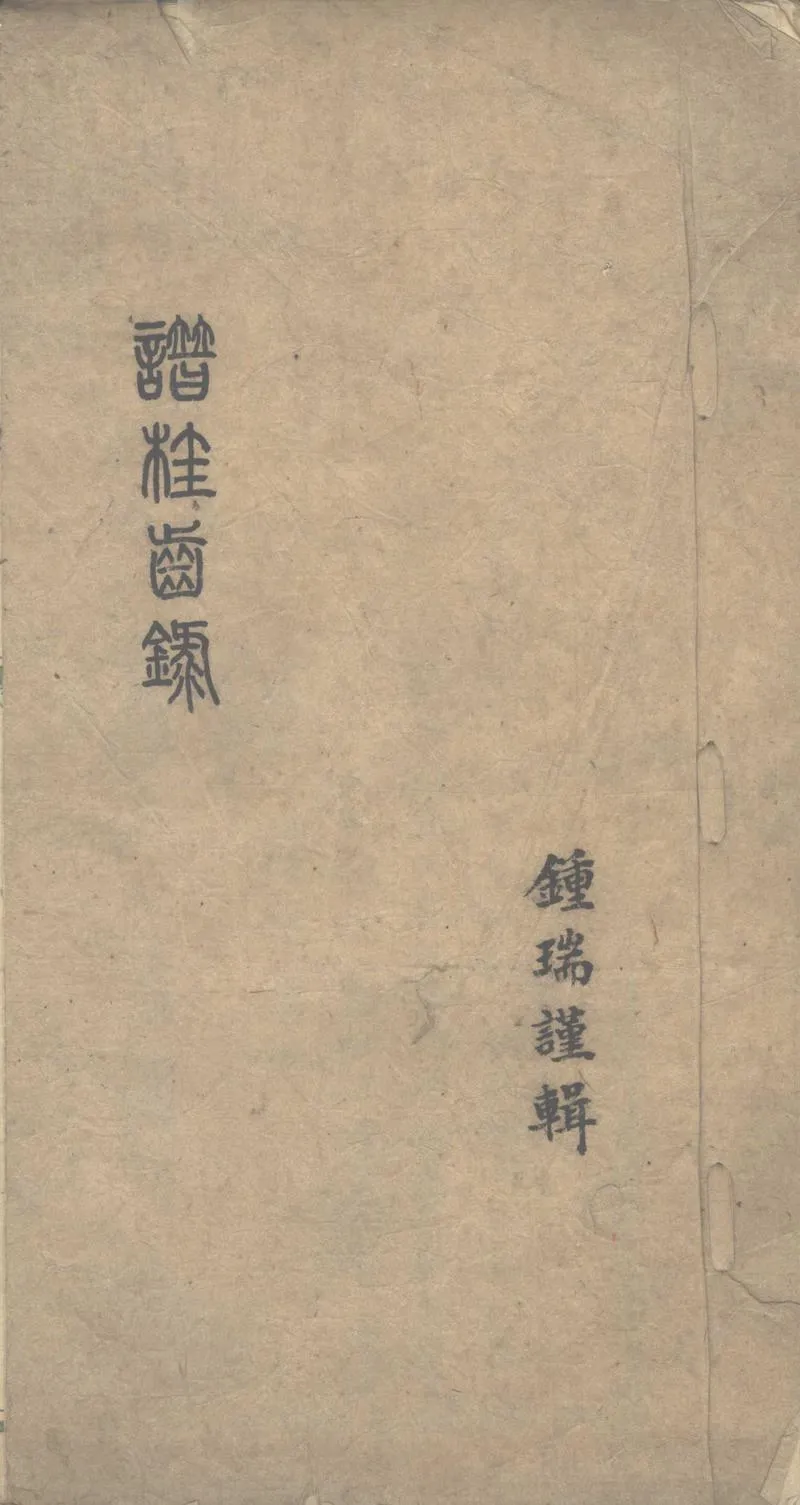 譜桂齒錄
鍾瑞謹輯